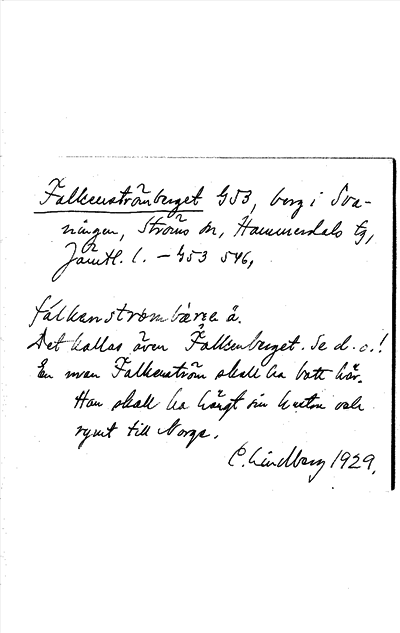 Falkenströmberget G53, berg i Sva-
ningen, Ströms sn, Hammerdals tg,
Jämtl. l. — 453 546,
fálkanstrømbæree ä.
Det kallas även Falkenberget. Se d. o.!
En man Falkenström skall ha bott här.
Han skall ha hängt sin hustru och
rymt till Norge.
C. Lindberg 1929.